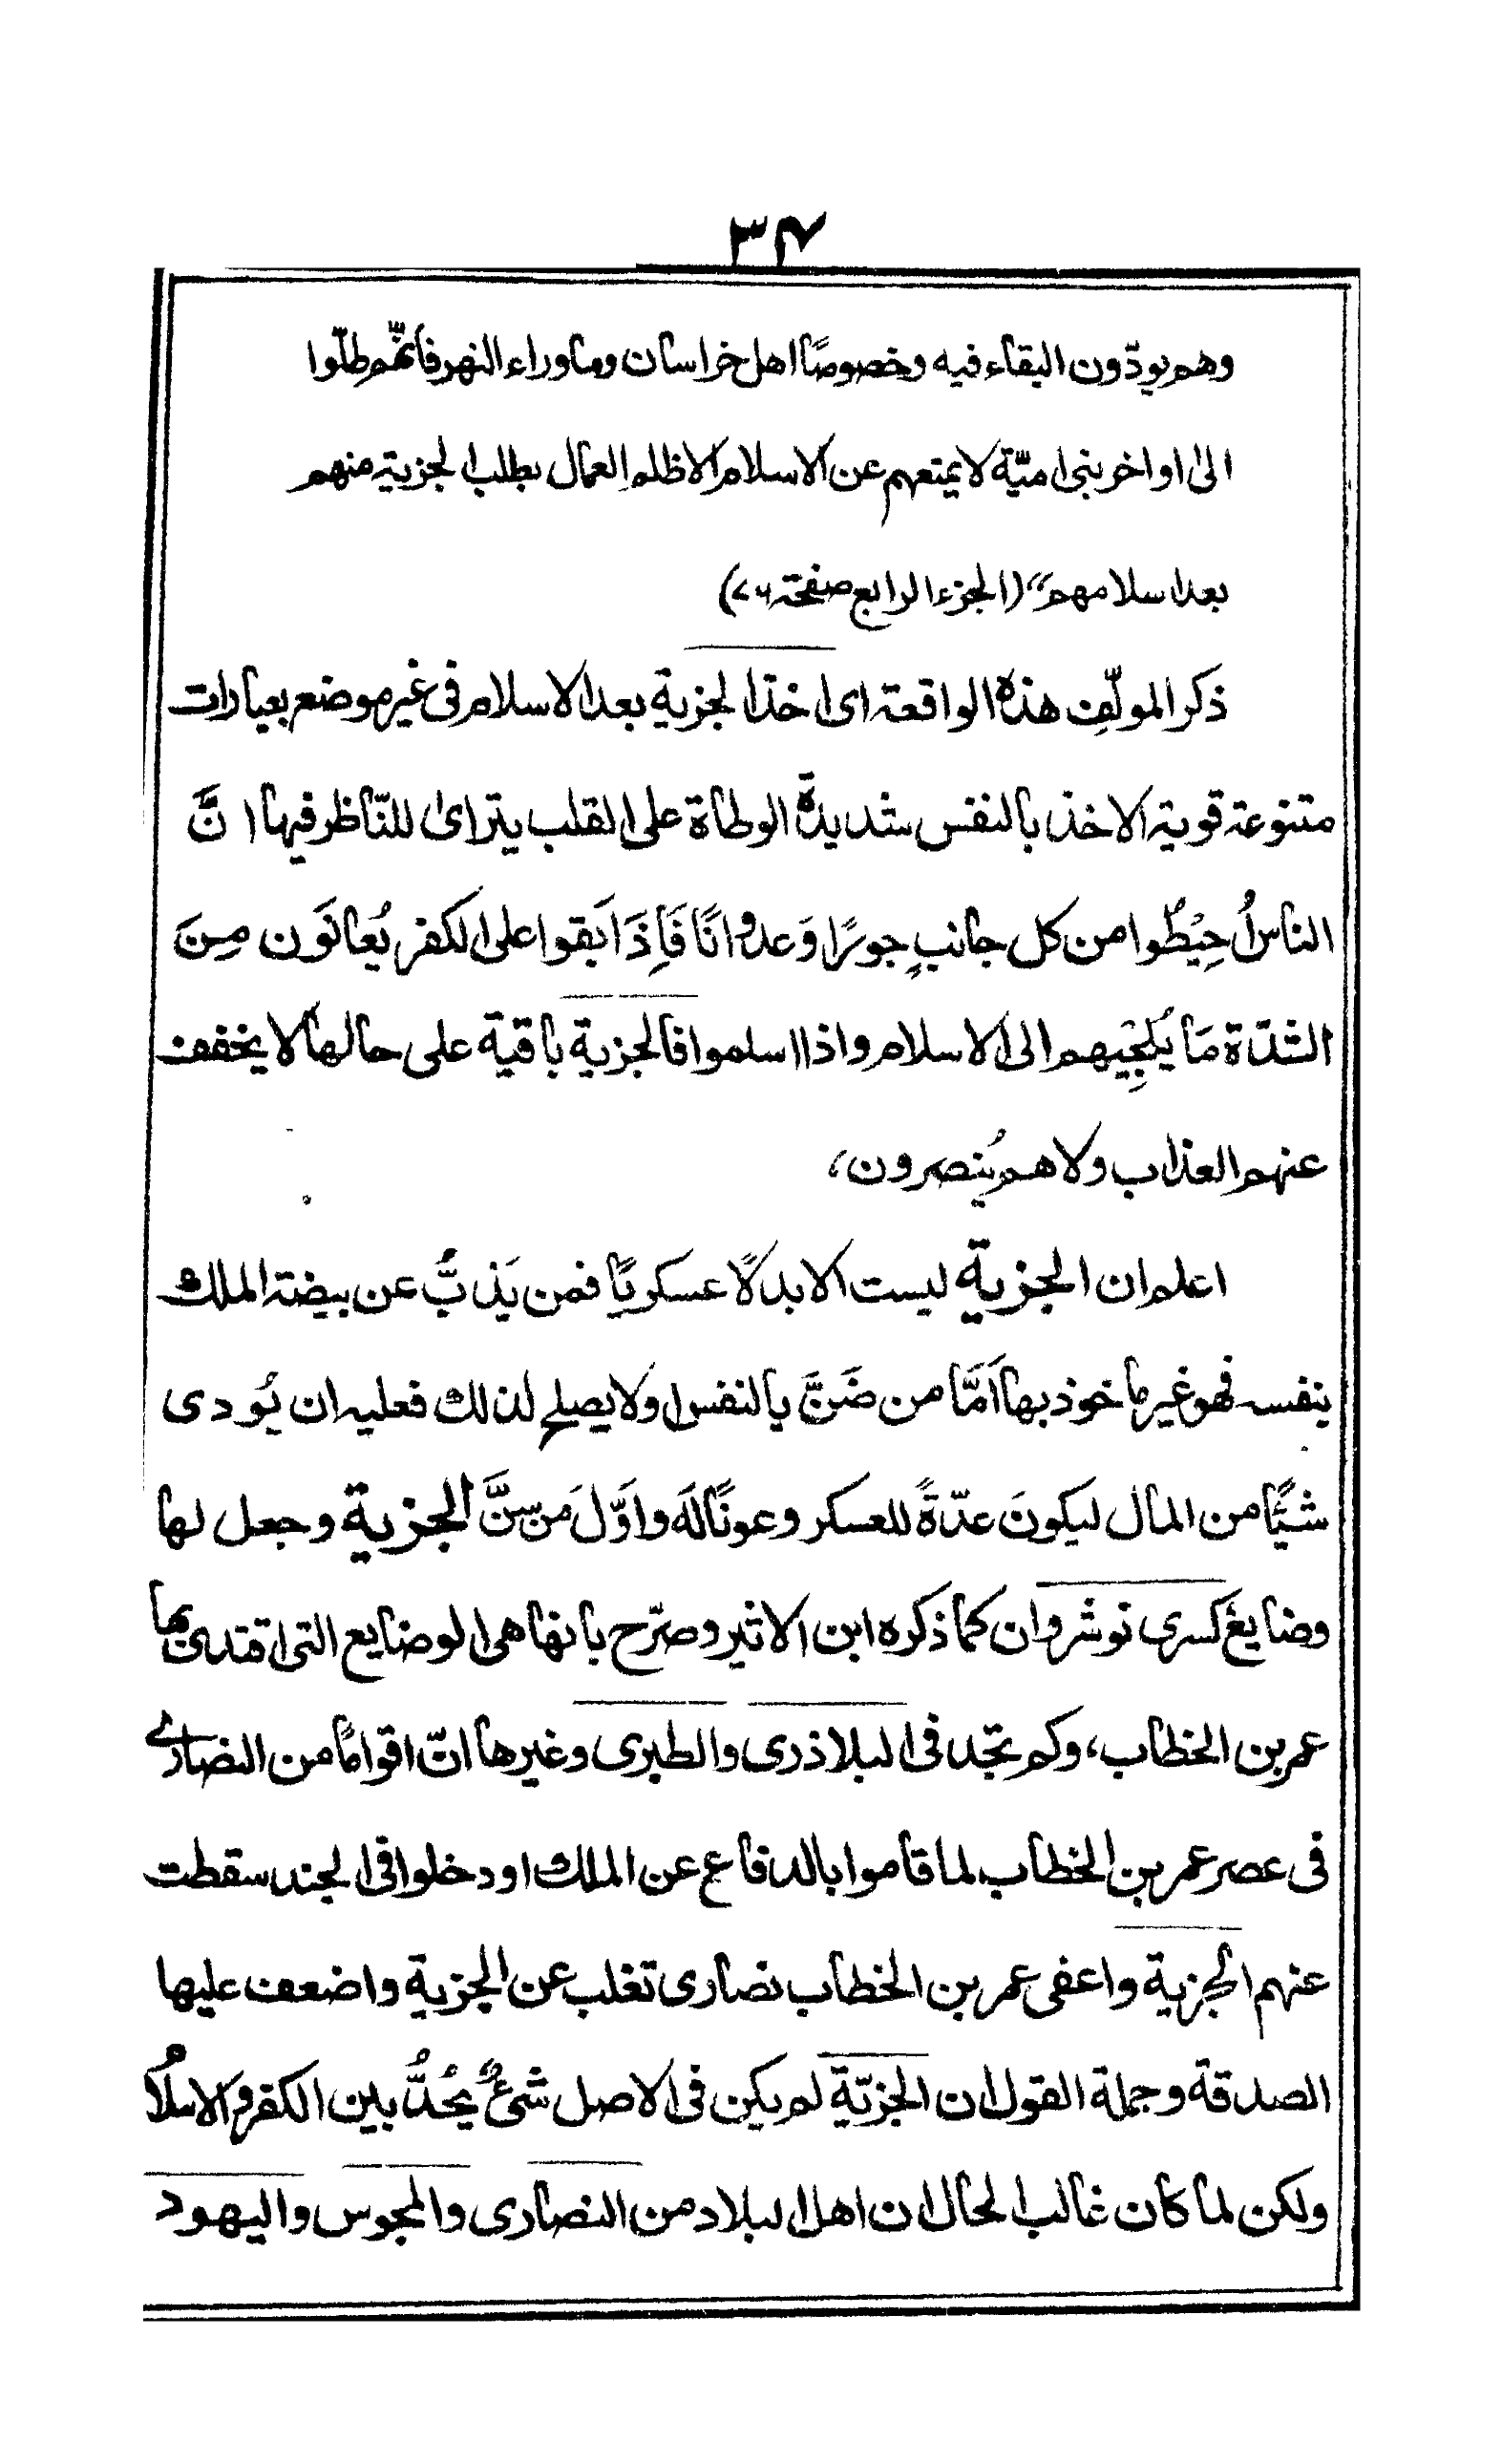 ٣٤
وهم يودّون البقاء فيه وخصوصًا اهل خراسان وماوراء النهر فانهّم ظلّوا
الىٰ اواخر بنى اميّة لا يمتعهم عن الاسلام الا ظلم العمال بطلب الجزية منهم
بعد اسلامهم” (الجزء الرابع صفحة ٧٦)
ذكر المولّف هذه الواقعة اى اخذ الجزية بعد الاسلام فى غير موضع بعبارات
متنوعة قوية الاخذ بالنفس شديدة الوطاة على القلب يترائ للنّاظر فيها انَّ
الناسُ حِيْطُوا من كل جانبٍ جورًا وَعدوانًا فَاِذَا بَقوا على الكفر يُعانَون مِنَ
الشدّة مَا يُلجِيهم الى الاسلام واذا اسلموا فالجزية باقية على حالها لا يخفف
عنهم العذاب ولا هم يُنصرون،
اعلم ان الجزية ليست الا بدلًا عسكريًا فمن يَذبُّ عن بيضة الملك
بنفسه فهو غير ماخوذ بها اَمَّا من ضَنَّ بالنفس ولا يصلح لذلك فعليه ان يُودى
شيًّا من المال ليكونَ عدّةً للعسكر وعونًا لَه واَوّلَ من سنَّ الجزية وجعل لها
وضايعَ كسرى نوشروان كما ذكره ابن الاثير وصرّح بانها هى الوضايع التى اقتدى بها
عمر بن الخطاب، وكم تجد فى البلاذرى والطبرى وغيرها انّ اقوامًا من النصارى
فى عصر عمر بن الخطاب لما قاموا بالدفاع عن الملك او دخلوا فى الجند سقطت
عنهم الجزية واعفى عمر بن الخطاب نصارى تغلب عن الجزية واضعف عليها
الصدقة وجملة القول ان الجزيّة لم يكن فى الاصل شئٌ يُحَدُّ بين الكفر والاسلام
ولكن لما كان غالب الحال ان اهل البلاد من النصارى والمجوس واليهود